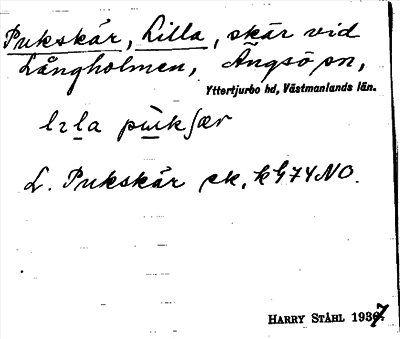 Pukskär, Lilla, skär vid
Långholmen, Ängsö sn,
Yttertjurbo hd, Västmanlands län.
lɩla pukſær
L. Pukskär ek. k G74NO.
HARRY STÅHL 1937